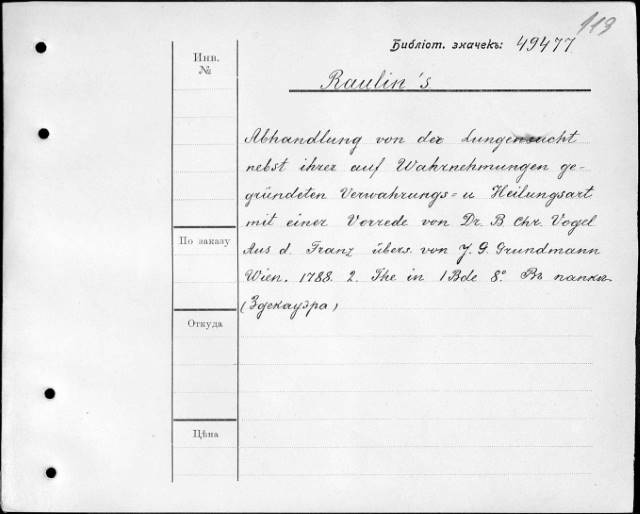 119
Библіот. значекъ: 49477
Инв.
№
Raulin's
Abhandlung von der Lungensucht
nebst ihrer auf Wahrnehmungen ge-
gründeten Verwahrungs= u Heilungsart
mit einer Vorrede von Dr. B. Chr. Vogel
Aus d. Franz übers. von J. G. Grundmann
Wien. 1788. 2. The in 1 Bde 8° Въ папкѣ
(Здекауэра)
По заказу
Откуда
Цѣна